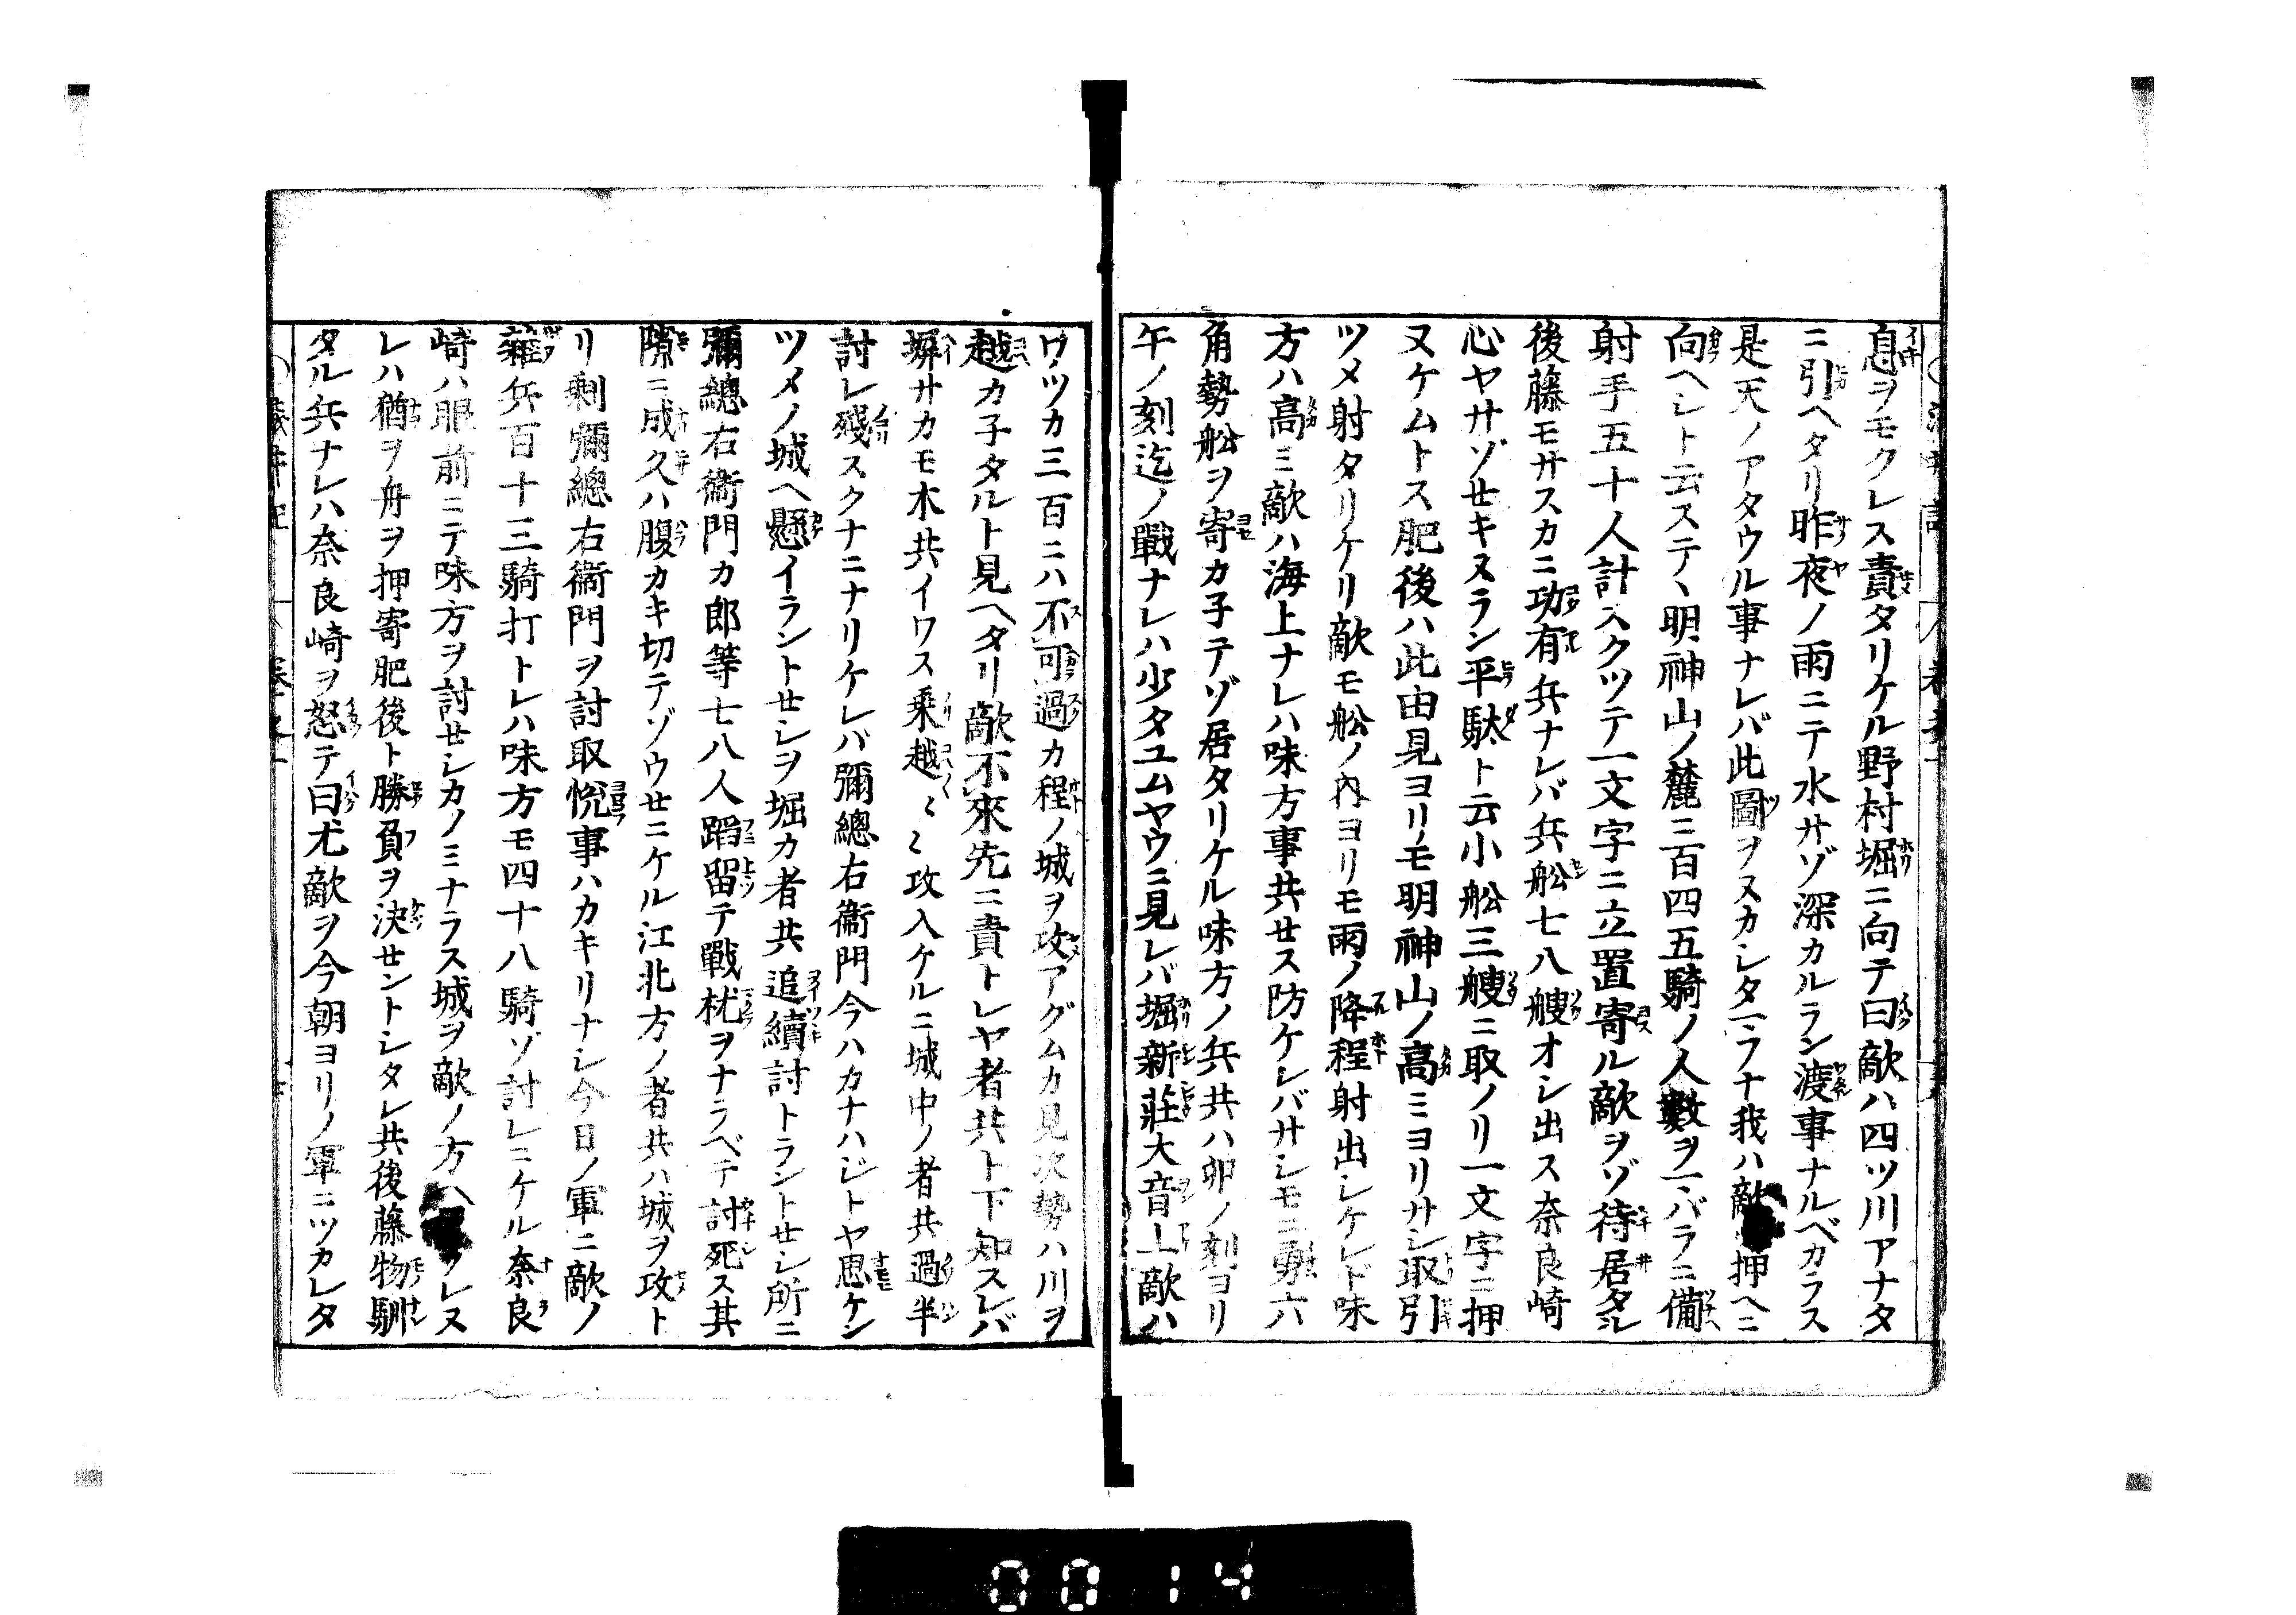 息ヲモクレス責タリケル野村堀ニ向テ曰敵ハ四ツ川アナタ
ニ引ヘタリ昨夜ノ雨ニテ水サゾ深カルラン渡事ナルベカラス
是天ノアタウル事ナレバ此圖ヲヌカシタラナ我ハ敵押ヘニ
向ヘシト云ステヽ明神山ノ麓三百四五騎ノ人數ヲ一バラニ備
射手五十人計スクツテ一文字ニ立置寄ル敵ヲゾ待居タル
後藤モサスカニ功有兵ナレバ兵舩七八艘オシ出ス奈良崎
心ヤサゾセキヌラン平駄ト云小舩三艘ニ取ノリ一文字ニ押
ヌケムトス肥後ハ此由見ヨリモ明神山ノ高ミヨリサシ取引
ツメ射タリケリ敵モ舩ノ內ヨリモ雨ノ降程射出シケレド味
方ハ高ミ敵ハ海上ナレハ味方事共セス防ケレバサシモニ勇六
角勢舩ヲ寄カ子テゾ居タリケル味方ノ兵共ハ卯ノ刻ヨリ
午ノ刻迄ノ戰ナレハ少タユムヤウニ見レバ堀新莊大音上敵ハ
ワツカ三百ニハ不可過カ程ノ城ヲ攻アグムカ見次勢ハ川ヲ
越カ子タルト見ヘタリ敵不來先ニ責トレヤ者共ト下知スレバ
塀サカモ木共イワス乗越〻〻攻入ケルニ城中ノ者共過半
討レ殘スクナニナリケレバ彌總右衞門今ハカナハジトヤ思ケン
ツメノ城ヘ懸イラントセシヲ堀カ者共追續討トラントセシ所ニ
彌總右衞門カ郎等七八人蹈留テ戰枕ヲナラベテ討死ス其
隙ニ成久ハ腹カキ切テゾウセニケル江北方ノ者共ハ城ヲ攻ト
リ剰彌總右衞門ヲ討取悅事ハカキリナシ今日ノ軍ニ敵ノ
雜兵百十三騎打トレハ味方モ四十八騎ゾ討レニケル奈良
崎ハ眼前ニテ味方ヲ討セシカノミナラス城ヲ敵ノ方ヘレヌ
レハ猶ヲ舟ヲ押寄肥後ト勝負ヲ決セントシタレ共後藤物馴
タル兵ナレハ奈良崎ヲ怒テ曰尤敵ヲ今朝ヨリノ軍ニツカレタ
0014